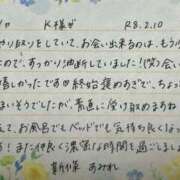 K様♡ R8.2.10
やり取りをしていて、お会い出来るのは、もう
ので、すっかり油断していました!(笑)会い
嬉しかったです☺終始褒めあぎで、ちょっ
まいそうでしたが素直に受け取りますね
て、お風呂でもベッドでも気持ち良くなっ
!また仲良く濃密な時間を過ごしましょ
新保 あみれ